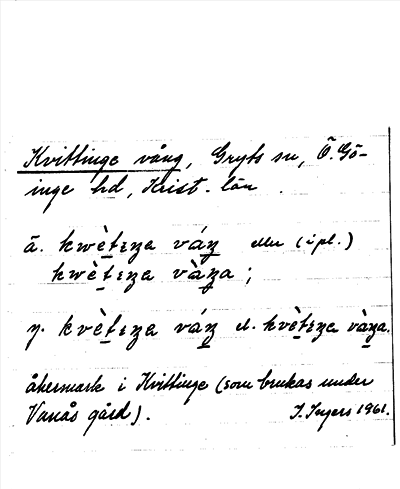 Kvittinge vång, Gryts sn, Ö. Gö-
inge hd, Krist. län.
ä. kwètɛŋa váŋ eller (i pl.)
kwètɛŋa vàŋa;
y. kvètɛŋa váŋ el. kvètɛŋa vàŋa.
åkermark i Kvittinge (som brukas under
Vanås gård). I. Ingers 1961.